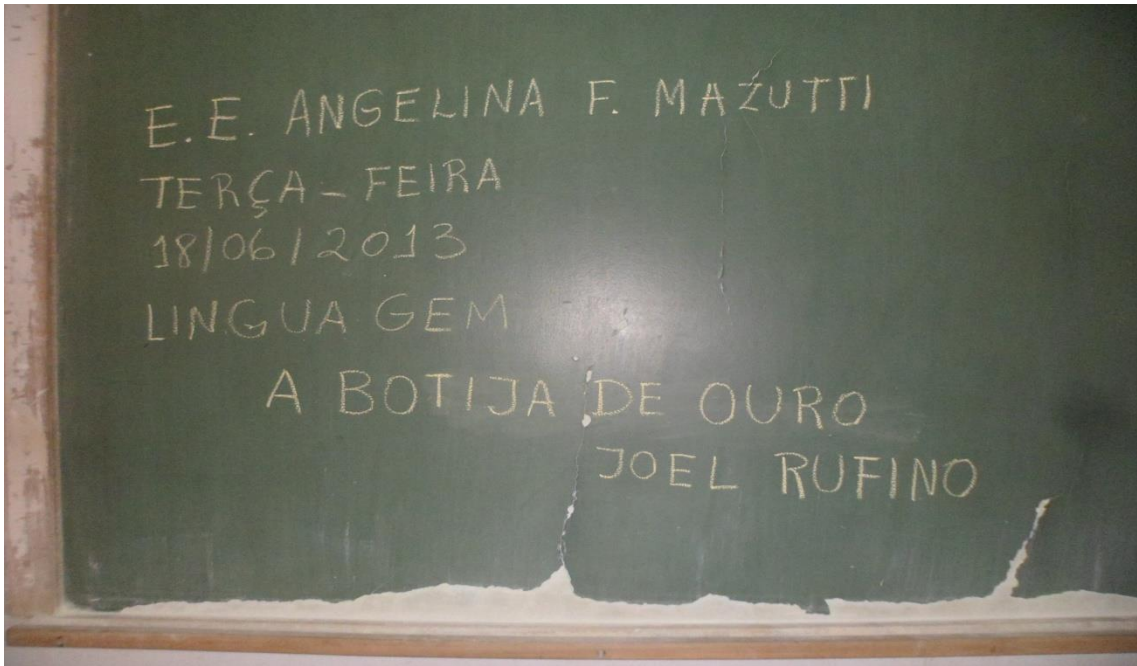 E.E. ANGELINA F. MAZUTTI
TERÇA - FEIRA
18/06/2013
LINGUAGEM
A BOTIJA DE OURO
JOEL RUFINO